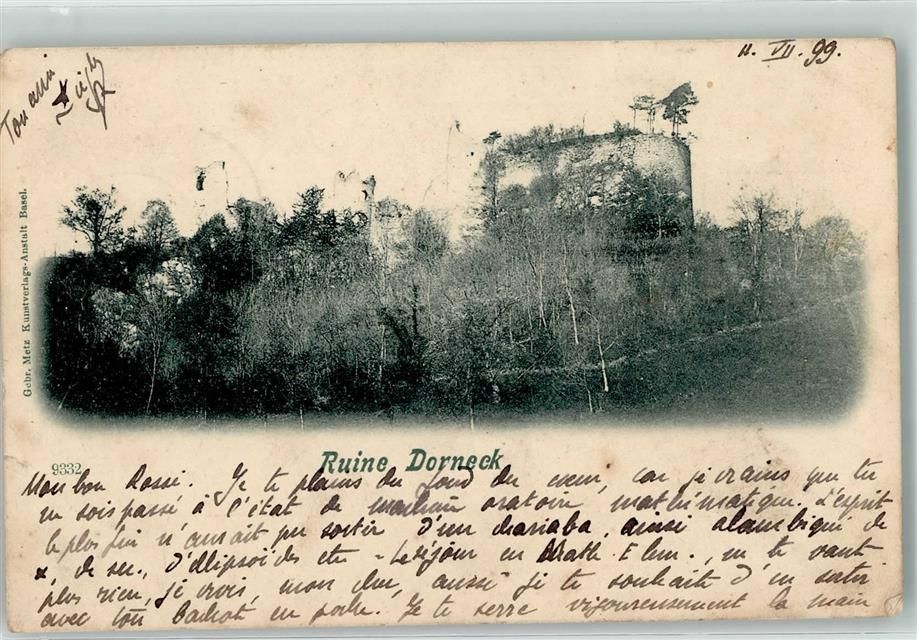 11. VII. 99.
Ton ami
Gebr. Metz Kunstverlags-Anstalt Basel.
9332
Ruine Dorneck
Mon bon Rossé. Je te plains du fond du cœur, car je crains que tu
ne sois passé à l'état de machine oratoire mathématique. L'esprit
le plus fin n'aurait pu sortir d'un ainsi alambiqué de
x, de sin., d'ellipsoïdes etc - Le séjour en ne te vaut
plus rien, je crois, mon cher, aussi je te souhaite d'en sortir
avec ton Bachot en poche. Je te serre vigoureusement la main